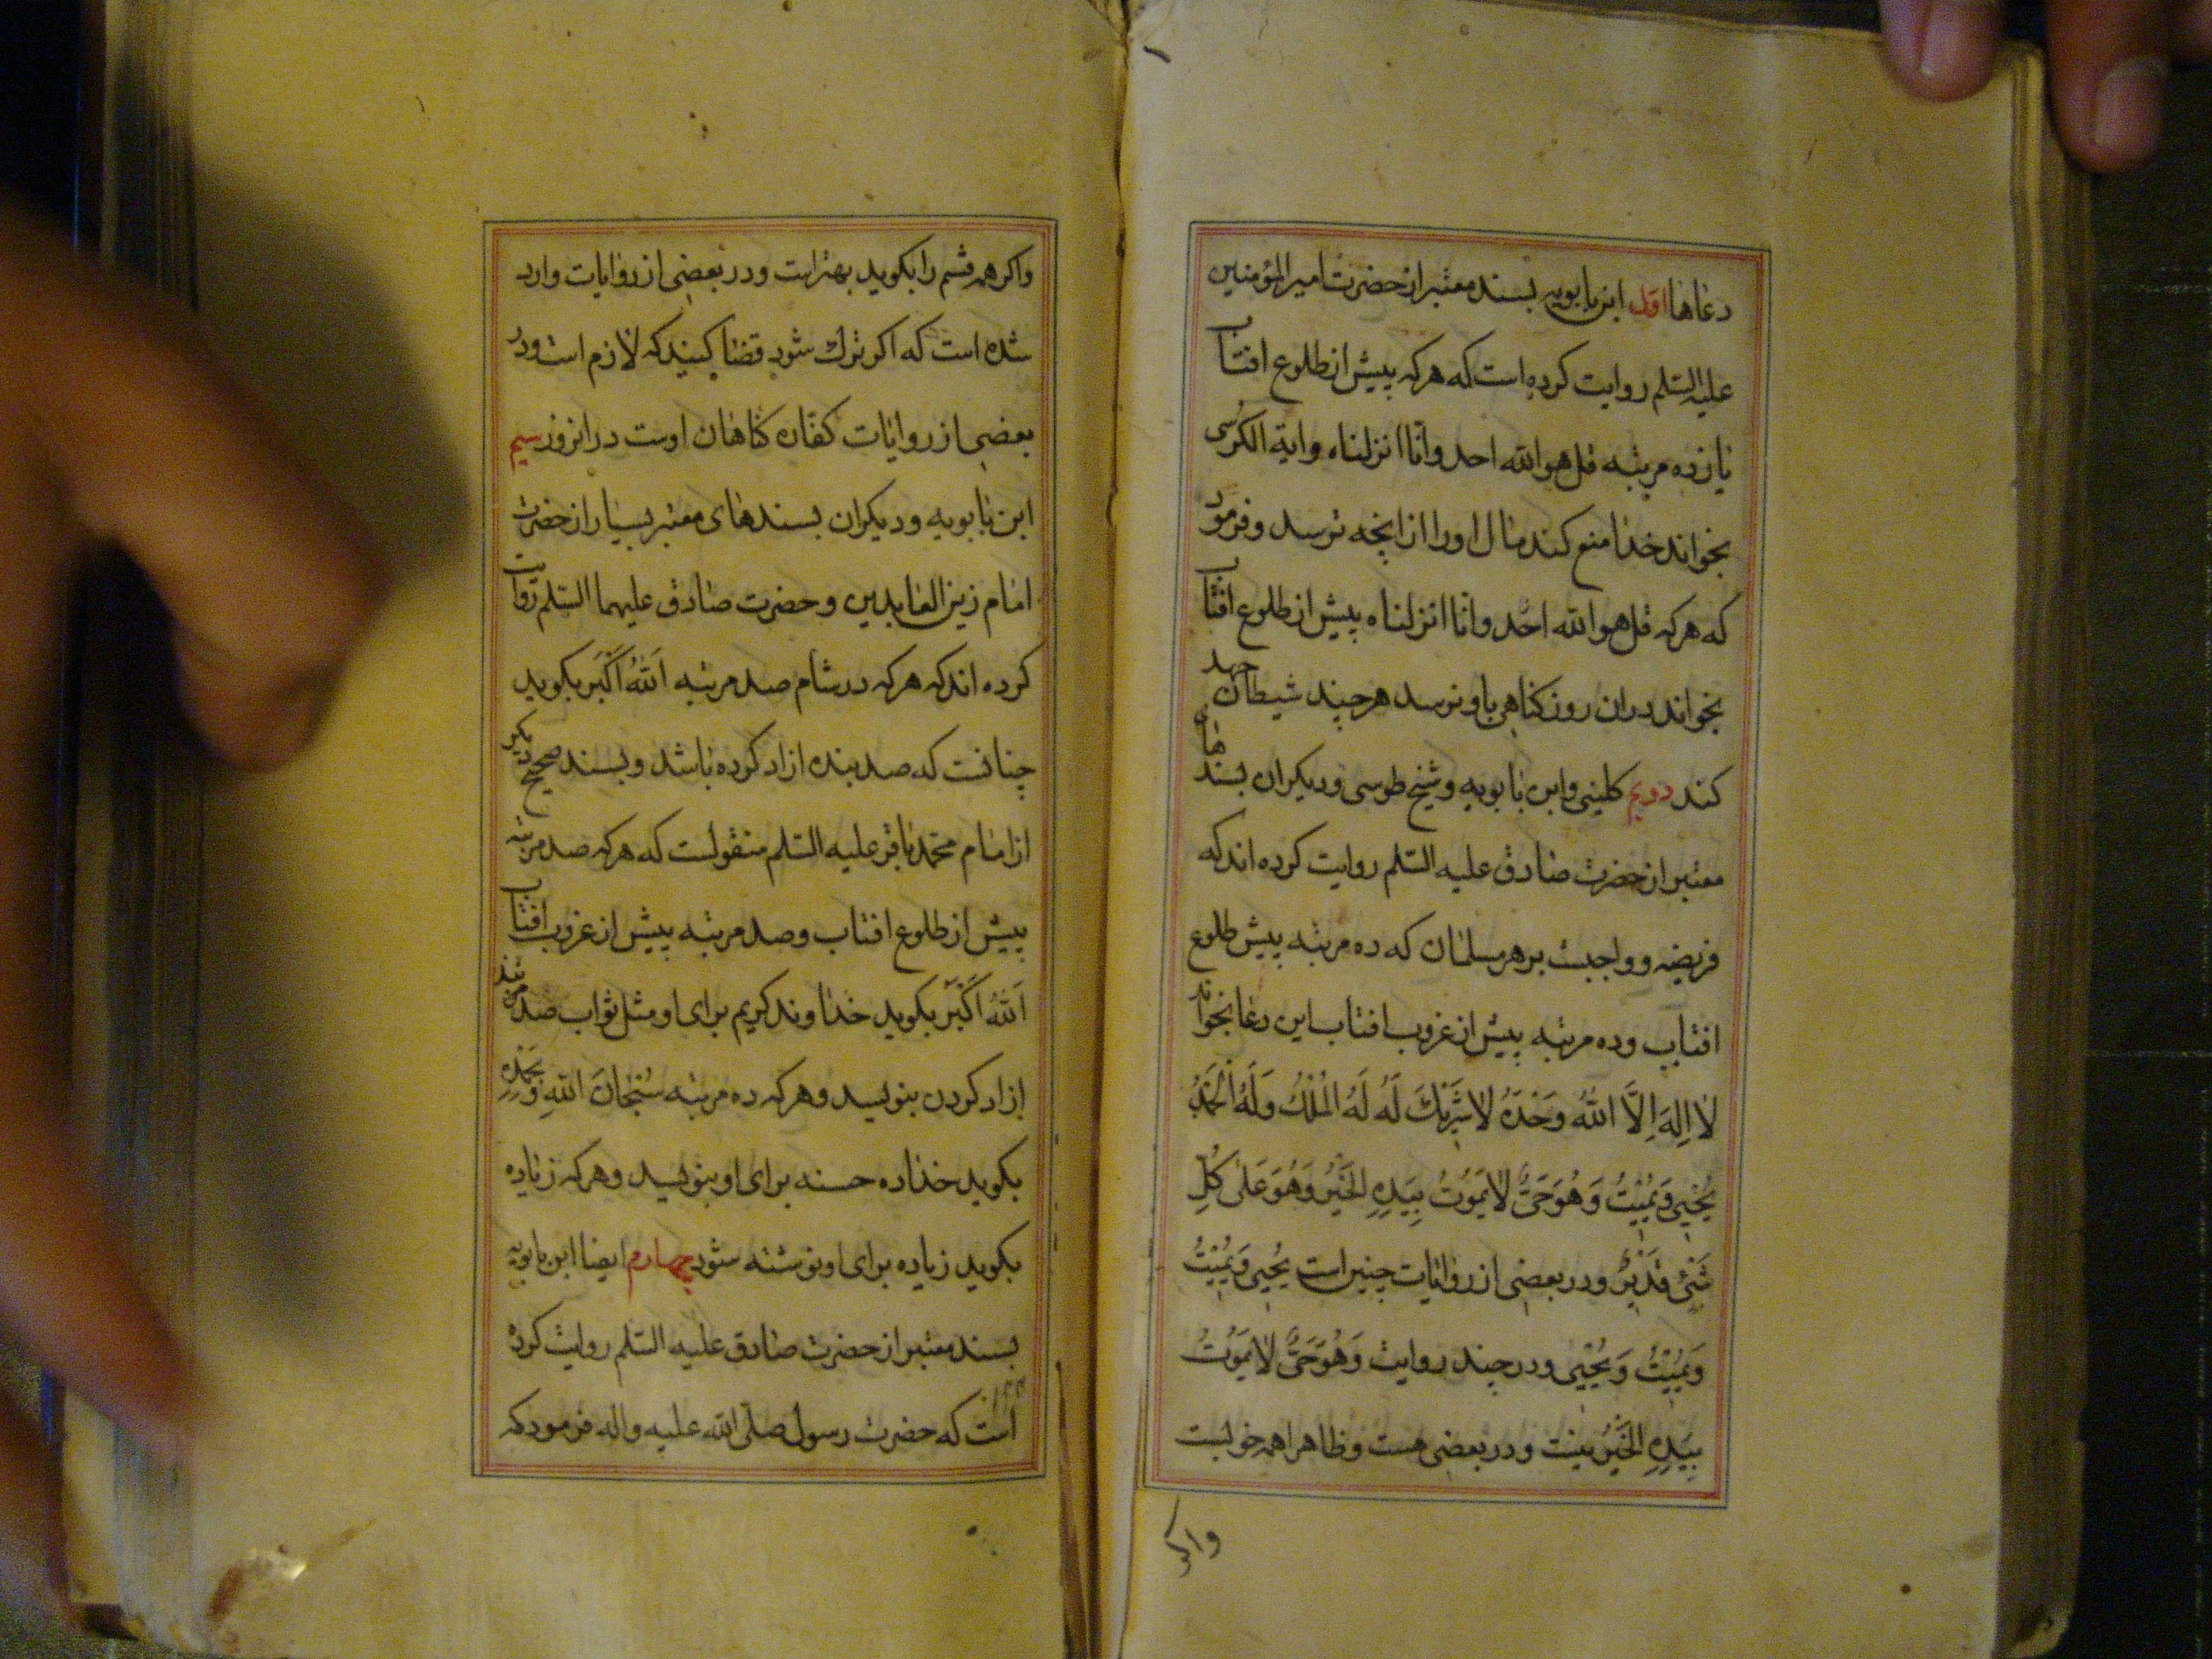 دعاها اول ابن بابویه بسند معتبر از حضرت امیر المؤمنین
علیه السلم روایت کرده است که هرکه پیش از طلوع افتاب
یازده مرتبه قل هو الله احد وانا انزلناه وایة الکرسی
بخواند خدا منع کند مال او را از انچه ترسد وفرمود
که هرکه قل هو الله احد وانا انزلناه پیش از طلوع افتاب
بخواند دران روز کناهی باو نرسد هرچند شیطان جهد
کند دویم کلینی وابن بابویه وشیخ طوسی ودیکران بسندهای
معتبر از حضرت صادق علیه السلم روایت کرده اند که
فریضه وواجبست بر هر مسلمان که ده مرتبه پیش طلوع
افتاب وده مرتبه پیش از غروب افتاب این دعا بخواند
لا اِلهَ اِلَّا اللهُ وَحْدَهُ لا شَرِیْكَ لَهُ لَهُ الْمُلْكُ وَلَهُ الْحَمْدُ
یُحْیِی وَیُمِیْتُ وَهُوَ حَیٌّ لا یَمُوْتُ بِیَدِهِ الْخَیْرُ وَهُوَ عَلی کُلِّ
شَیْءٍ قَدِیْرٌ ودر بعضی از روایات چنین است یُحْیِی وَیُمِیْتُ
وَیُمِیْتُ وَیُحْیِی ودر چند روایت وَهُوَ حَیٌّ لا یَمُوْتُ
بِیَدِهِ الْخَیْرُ نیست ودر بعضی هست وظاهرا همه خوبست
واکر
واکر همه قسم را بکوید بهتر است ودر بعضی از روایات وارد
شده است که اکر ترك شود قضا کنید که لازم است ودر
بعضی از روایات کفاره کناهان اوست در انروز سیم
ابن بابویه ودیکران بسندهای معتبر بسیار از حضرت
امام زین العابدین وحضرت صادق علیهما السلم روایت
کرده اند که هرکه در شام صد مرتبه اَللهُ اَکْبَر بکوید
چنانست که صد بنده ازاد کرده باشد وبسند صحیح دیکر
از امام محمد باقر علیه السلم منقولست که هرکه صد مرتبه
پیش از طلوع افتاب وصد مرتبه پیش از غروب افتاب
اَللهُ اَکْبَر بکوید خداوند کریم برای او مثل ثواب صد بنده
ازاد کردن بنویسد وهرکه ده مرتبه سُبْحَانَ اللهِ وَبِحَمْدِهِ
بکوید خدا ده حسنه برای او بنویسد وهرکه زیاده
بکوید زیاده برای او نوشته شود چهارم ایضا ابن بابویه
بسند معتبر از حضرت صادق علیه السلم روایت کرده
است که حضرت رسول صلی الله علیه واله فرمود که